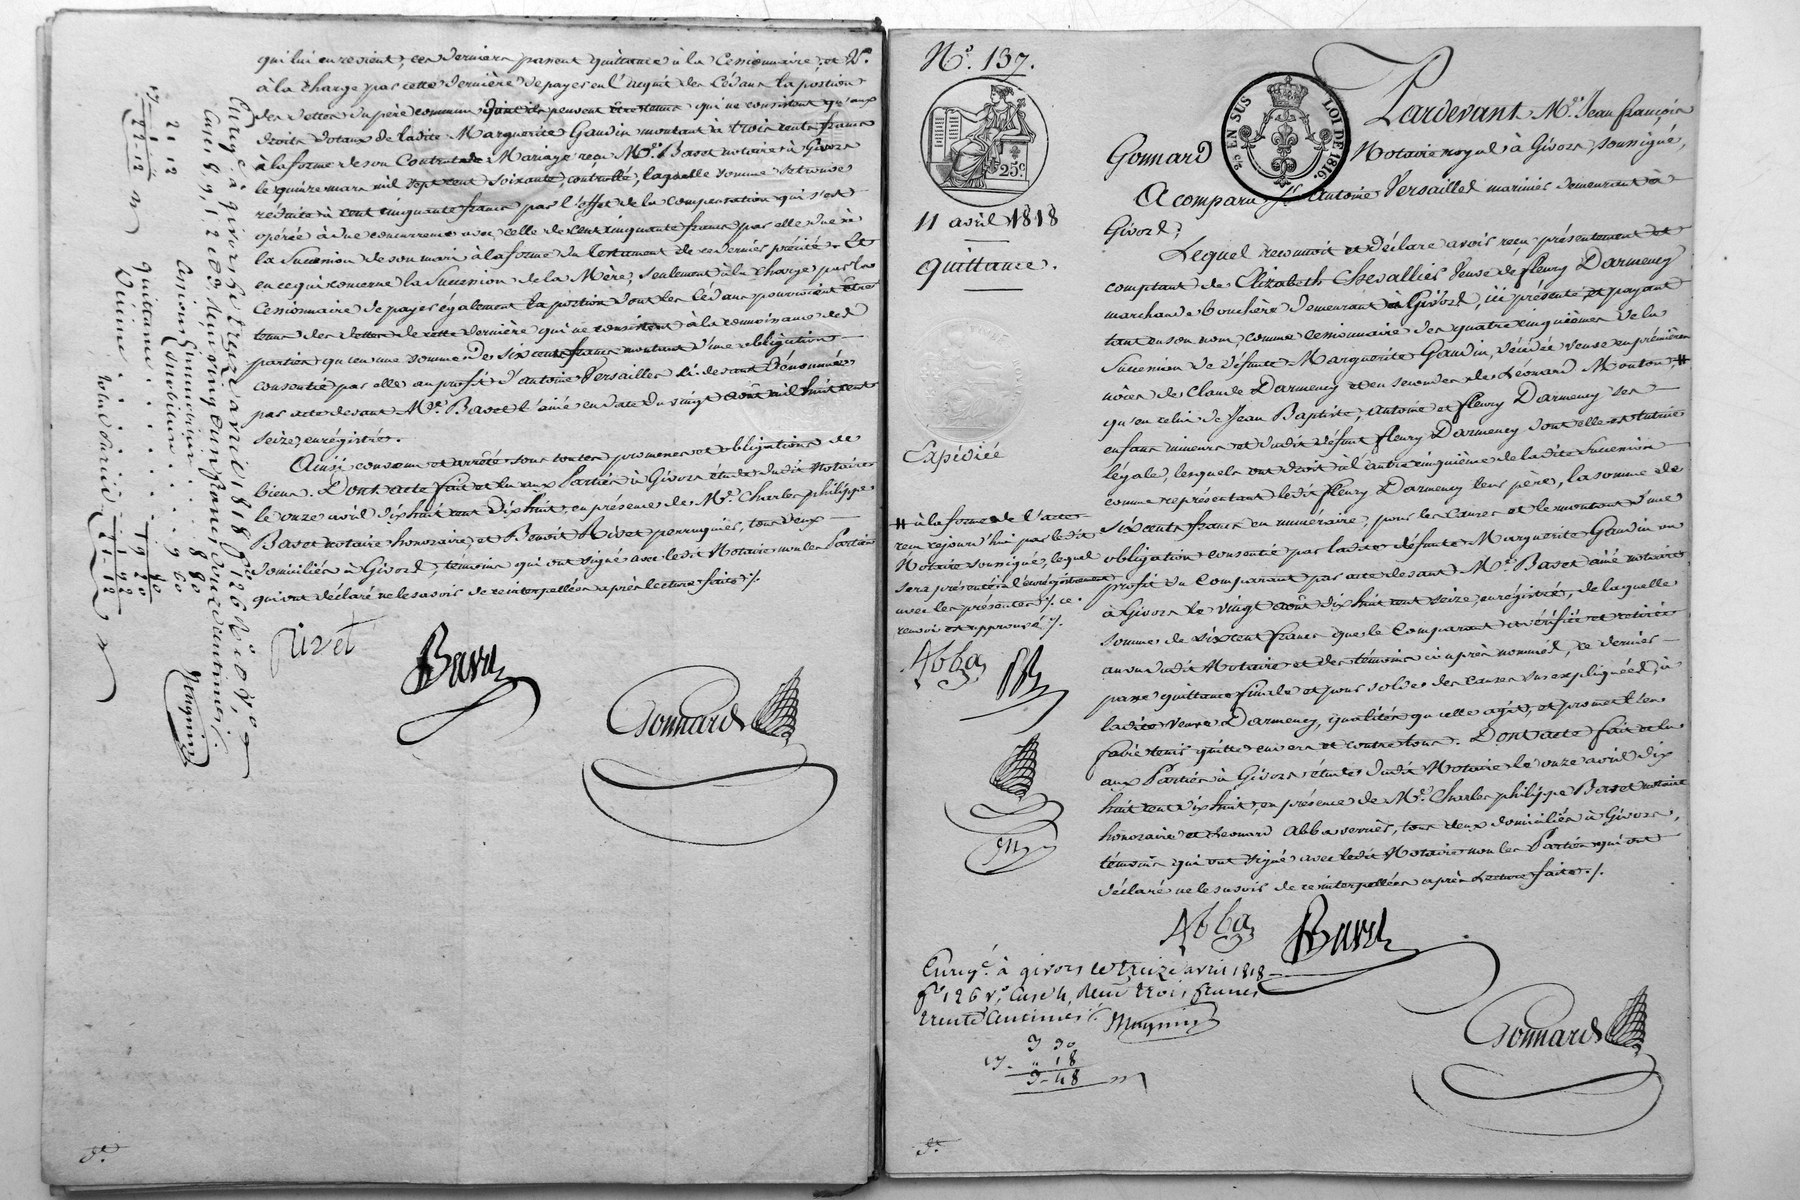 qui lui en revient, ces derniers passent quittance à la Cessionnaire, et
à la charge par cette dernière de payer en l'acquit des Cédans la portion
des dettes du père commun dont ils peuvent être tenus qui ne consistent qu'aux
droits dotaux de ladite Marguerite Gaudin montant à trois cents francs
à la forme de son Contrat de Mariage reçu Me. Baset notaire à Givors
le quinze mars mil sept cent soixante, controllé, laquelle somme se trouve
réduite à cent cinquante francs par l'effet de la compensation qui s'est
opérée à due concurrence avec celle de cent cinquante francs par elle due à
la Succession de son mari à la forme du testament de ce dernier précité. Et
en ce qui concerne la Succession de la Mère, seulement à la charge par la
Cessionnaire de payer également la portion dont les Cédans pourroient être
tenus des dettes de cette dernière qui ne consistent à la connoissance des
parties qu'en une somme de six cents francs montant d'une obligation
consentie par elle au profit d'antoine Versailles ci-devant dénommée
par acte devant Me. Baset l'aîné en date du vingt août mil huit cent
seize, enregistré.
Ainsi convenu et arrêté sous toutes promesses et obligations de
biens. Dont acte fait et lu aux Parties à Givors étude dudit Notaire
le onze avril dix huit cent dix huit, en présence de Mr. Charles philippe
Baset notaire honoraire, et Benoit Rivet perruquier, tous deux
domiciliés à Givors, témoins qui ont signé avec ledit Notaire non les Parties
qui ont déclaré ne le savoir de ce interpellées après lecture faite ./.
rivet
Baset
Gonnard
Enregé. à givors le treize avril 1818 fo. 126 Ro.
Cases 8, 9, 1, 2 et 3,
Cession immobiliaire . . . 8 80
Quittance
Décime
N°. 137.
25c
11 avril 1818
Quittance.
Expédiée
EN SUS
LOI DE 1816.
Pardevant Me. Jean françois
Gonnard Notaire royal à Givors, soussigné,
A comparu Sr. Antoine Versailles marinier demeurant à
Givors;
Lequel reconnoit et déclare avoir reçu présentement et
comptant de Elizabeth Chevallier Veuve de fleury Darmency
marchande bouchère demeurant à Givors, ici présente, et payant
tant en son nom comme cessionnaire des quatre cinquièmes de la
Succession de défunte Marguerite Gaudin, décédée veuve en premières
nôces de Claude Darmency et en secondes de Léonard Mouton, #
qu'en celui de Jean Baptiste, Antoine et fleury Darmency ses
enfans mineurs et dudit défunt fleury Darmency dont elle est tutrice
légale, lesquels ont droit à l'autre cinquième de ladite Succession
comme représentant ledit fleury Darmency leur père, la somme de
six cents francs en numéraire, pour les causes et le montant d'une
obligation consentie par ladite défunte Marguerite Gaudin au
profit du Comparant par acte devant Me. Baset aîné notaire
à Givors le vingt août dix huit cent seize, enregistré, de laquelle
somme de six cent francs que le Comparant a vérifiée et retirée
au vu dudit Notaire et des témoins ci après nommés, ce dernier
passe quittance finale et pour solde des causes sus expliquées, à
ladite veuve Darmency, qualités qu'elle agit, et promet l'en
faire tenir quitte envers et contre tous. Dont acte fait et lu
aux Parties à Givors étude dudit Notaire le onze avril dix
huit cent dix huit, en présence de Mr. Charles philippe Baset notaire
honoraire et Leonard Abba verrier, tous deux domiciliés à Givors,
témoins qui ont signé avec ledit Notaire non les Parties qui ont
déclaré ne le savoir de ce interpellées après Lecture faite ./.
# à la forme de l'acte
reçu cejourd'hui par ledit
Notaire soussigné, lequel
sera présenté à l'enregistrement
avec les présentes ./. ce
renvoi est approuvé ./.
Abba
Abba
Baset
Gonnard
Enregé. à givors le treize avril 1818
fo. 126 vo. Case 4, Reçu trois francs
trente Centimes ./.
3 30
" 18
3-48